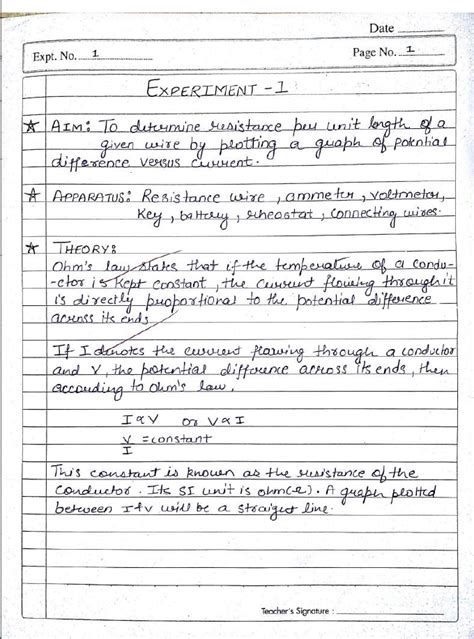 Date
Expt. No. 1
Page No. 1
EXPERIMENT - 1
★ AIM: To determine resistance per unit length of a
given wire by plotting a graph of potential
difference versus current.
★ APPARATUS: Resistance wire, ammeter, voltmeter,
Key, battery, rheostat, connecting wires.
★ THEORY:
Ohm's law states that if the temperature of a condu-
-ctor is kept constant, the current flowing through it
is directly proportional to the potential difference
across its ends
If I denotes the current flowing through a conductor
and V, the potential difference across its ends, then
according to ohm's law.
I ∝ V or V ∝ I
V/I = constant
This constant is known as the resistance of the
conductor. Its SI unit is ohm(Ω). A graph plotted
between I & V will be a straight line.
Teacher's Signature :